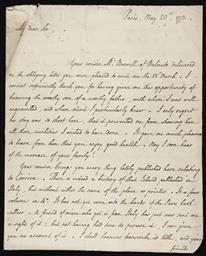 Paris, May 20th 1773.
My dear Sir
Your cousin Mr. Burnell of delivered
me the obliging letter you were pleased to write on the 15th March. I
cannot sufficiently thank you for having given me this opportunity of
knowing the worthy son of a worthy father, with whom I am well
acquainted, and whom indeed I particularly honor. I only regret
his stay was so short here, that it prevented me from shewing him
all those civilities I wished to have done. It gave me much pleasure
to learn from him that you enjoy good health. May I soon hear
of the increase of your family!
Your cousin brings you every thing lately published here relating
to Corsica. There is indeed a history of that Island published in
Italy, but without either the name of the place or printer. It is a four
volumes in 8vo. It has not yet come into the hands of the Paris book
sellers. A friend of mine who got it from Italy has just now sent me
a sight of it; but not having had time to peruse it, I can give
you no account of it. I shall however a little, and you